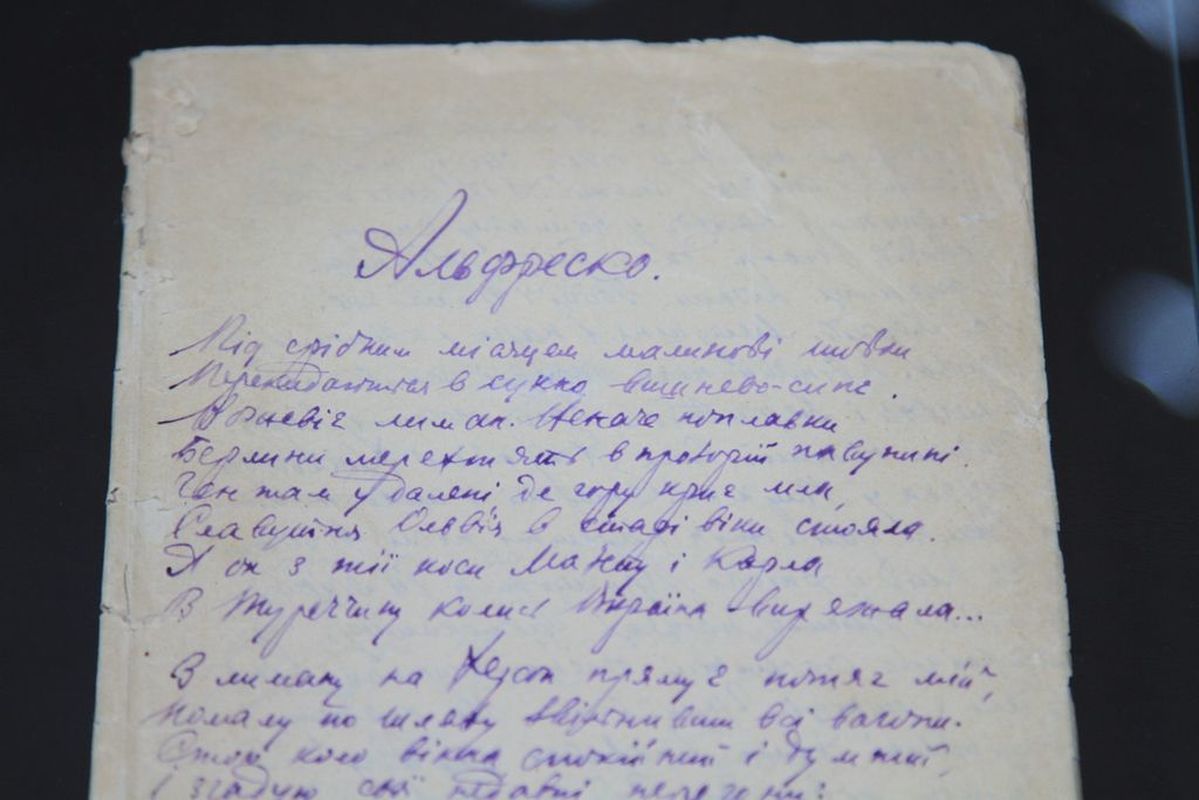 Альфреско.
Під срібним місяцем малинові шовки
Перекидаються в сукно вишнево-синє.
Лиман. Неначе поплавки
Берлини мерехтять в прозорій павутині.
Ген там у далені, де гору
Славутня Ольвія в старі віки стояла.
А он з тії коси Мамту і Карла
В Туреччину колись Україна виряжала...
В лиману на Херсон прямує потяг мій,
Помалу по шляху всі вагони.
Стою коло вікна спокійний і думний,
І згадую свої недавні перегони: